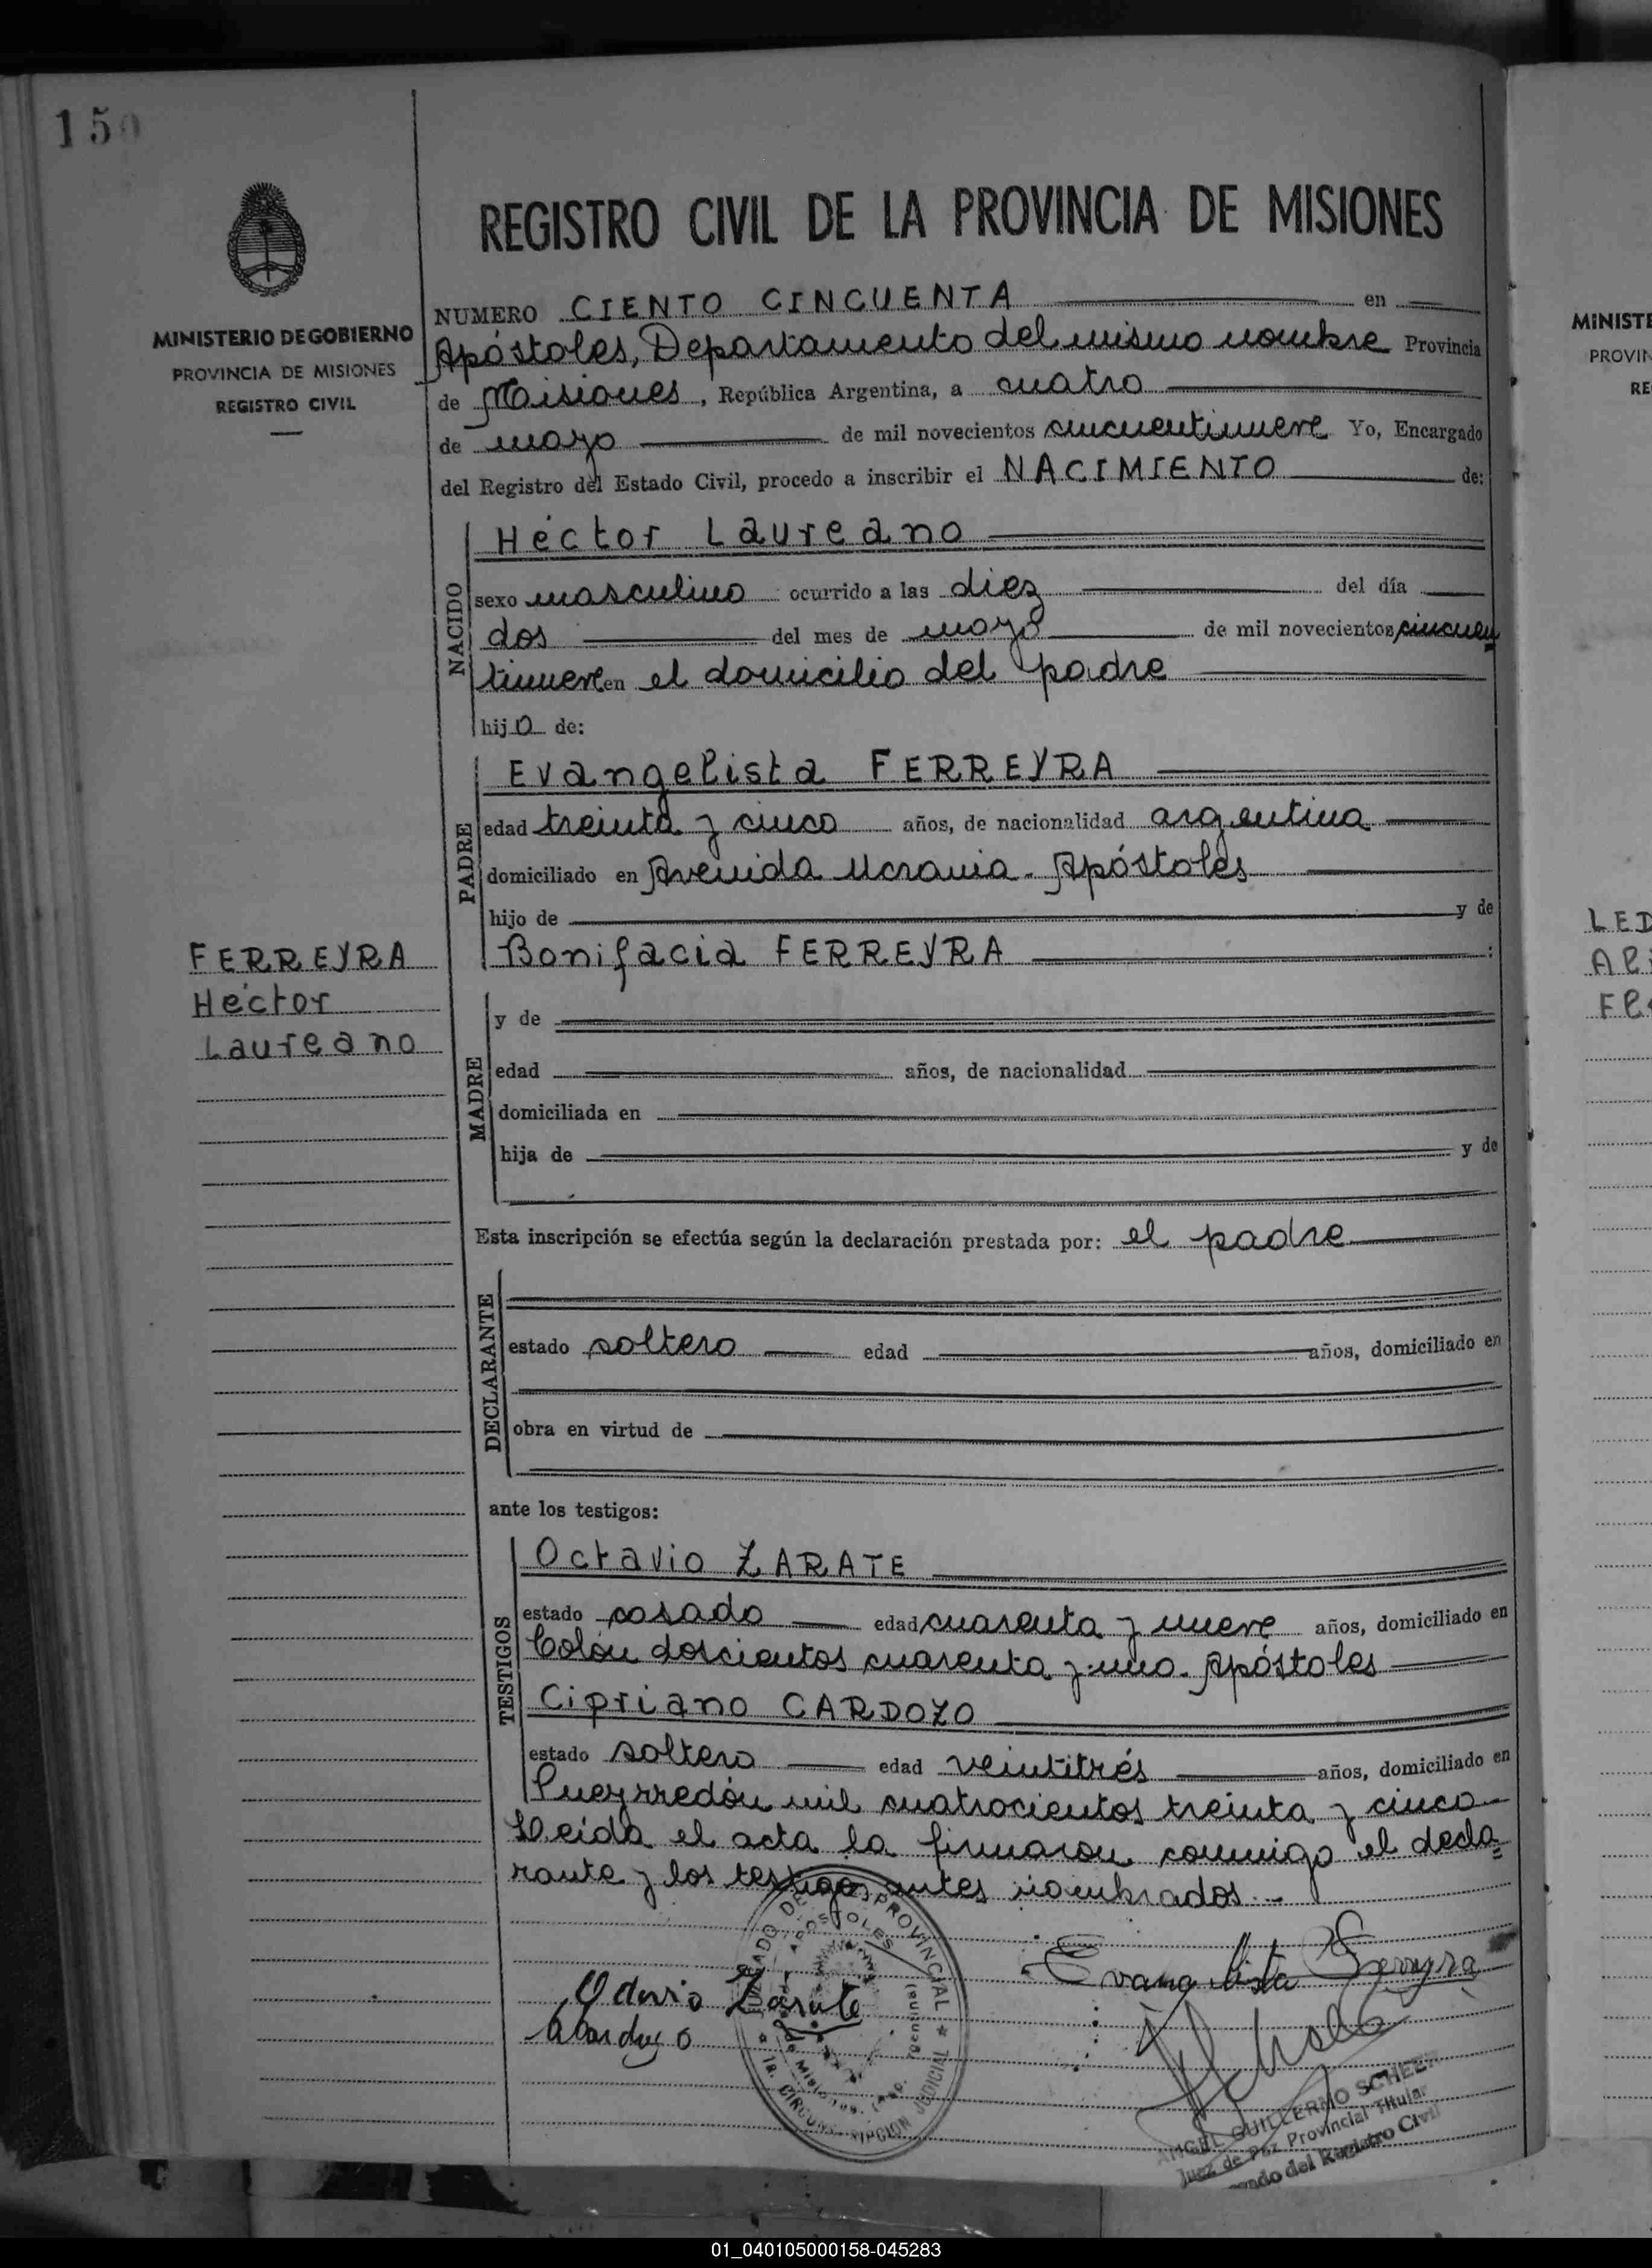 150
MINISTERIO DE GOBIERNO
PROVINCIA DE MISIONES
REGISTRO CIVIL
REGISTRO CIVIL DE LA PROVINCIA DE MISIONES
NUMERO CIENTO CINCUENTA en
Apóstoles, Departamento del mismo nombre Provincia
de Misiones, República Argentina, a cuatro
de mayo de mil novecientos cincuentinueve Yo, Encargado
del Registro del Estado Civil, procedo a inscribir el NACIMIENTO de:
NACIDO
Héctor Laureano
sexo masculino ocurrido a las diez del día
dos del mes de mayo de mil novecientos cincuen
tinueve en el domicilio del padre
hijo de:
PADRE
Evangelista FERREYRA
edad treinta y cinco años, de nacionalidad argentina
domiciliado en Avenida Ucrania - Apóstoles
hijo de y de
Bonifacia FERREYRA :
FERREYRA
Héctor
Laureano
MADRE
y de
edad años, de nacionalidad
domiciliada en
hija de y de
Esta inscripción se efectúa según la declaración prestada por: el padre
DECLARANTE
estado soltero edad años, domiciliado en
obra en virtud de
ante los testigos:
TESTIGOS
Octavio ZARATE
estado casado edad cuarenta y nueve años, domiciliado en
Colón doscientos cuarenta y uno - Apóstoles
Cipriano CARDOZO
estado soltero edad veintitrés años, domiciliado en
Pueyrredón mil cuatrocientos treinta y cinco -
Leída el acta la firmaron conmigo el decla
rante y los testigos antes nombrados. -
Evangelista Ferreyra
Octavio Zárate
PROVINCIAL
APOSTOLES
JUDICIAL
ANGEL GUILLERMO SCHEER
Juez de Paz Provincial Titular
del Registro Civil
MINISTE
PROVIN
RE
LED
01_040105000158-045283